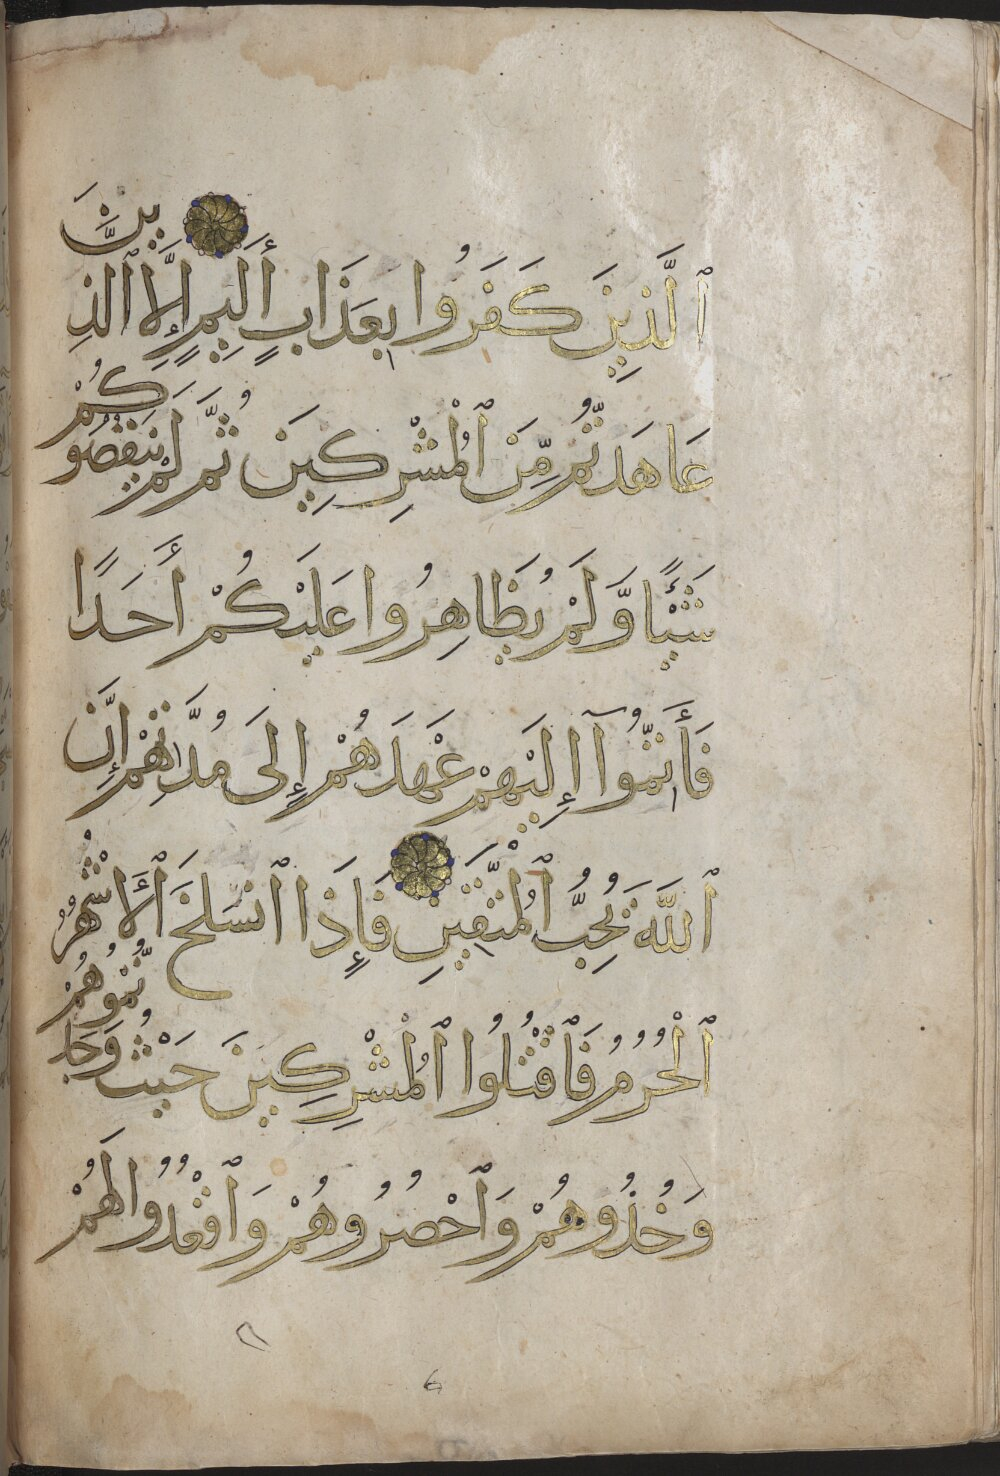 ٱلَّذِينَ كَفَرُوا بِعَذَابٍ أَلِيمٍ إِلَّا ٱلَّذِينَ
عَاهَدتُّمْ مِّنَ ٱلْمُشْرِكِينَ ثُمَّ لَمْ يَنقُصُوكُمْ
شَيْـًٔا وَّلَمْ يُظَاهِرُوا عَلَيْكُمْ أَحَدًا
فَأَتِمُّوٓا إِلَيْهِمْ عَهْدَهُمْ إِلَى مُدَّتِهِمْ إِنَّ
ٱللَّهَ يُحِبُّ ٱلْمُتَّقِينَ فَإِذَا ٱنسَلَخَ ٱلْأَشْهُرُ
ٱلْحُرُمُ فَٱقْتُلُوا ٱلْمُشْرِكِينَ حَيْثُ وَجَدتُّمُوهُمْ
وَخُذُوهُمْ وَٱحْصُرُوهُمْ وَٱقْعُدُوا لَهُمْ
٦
6